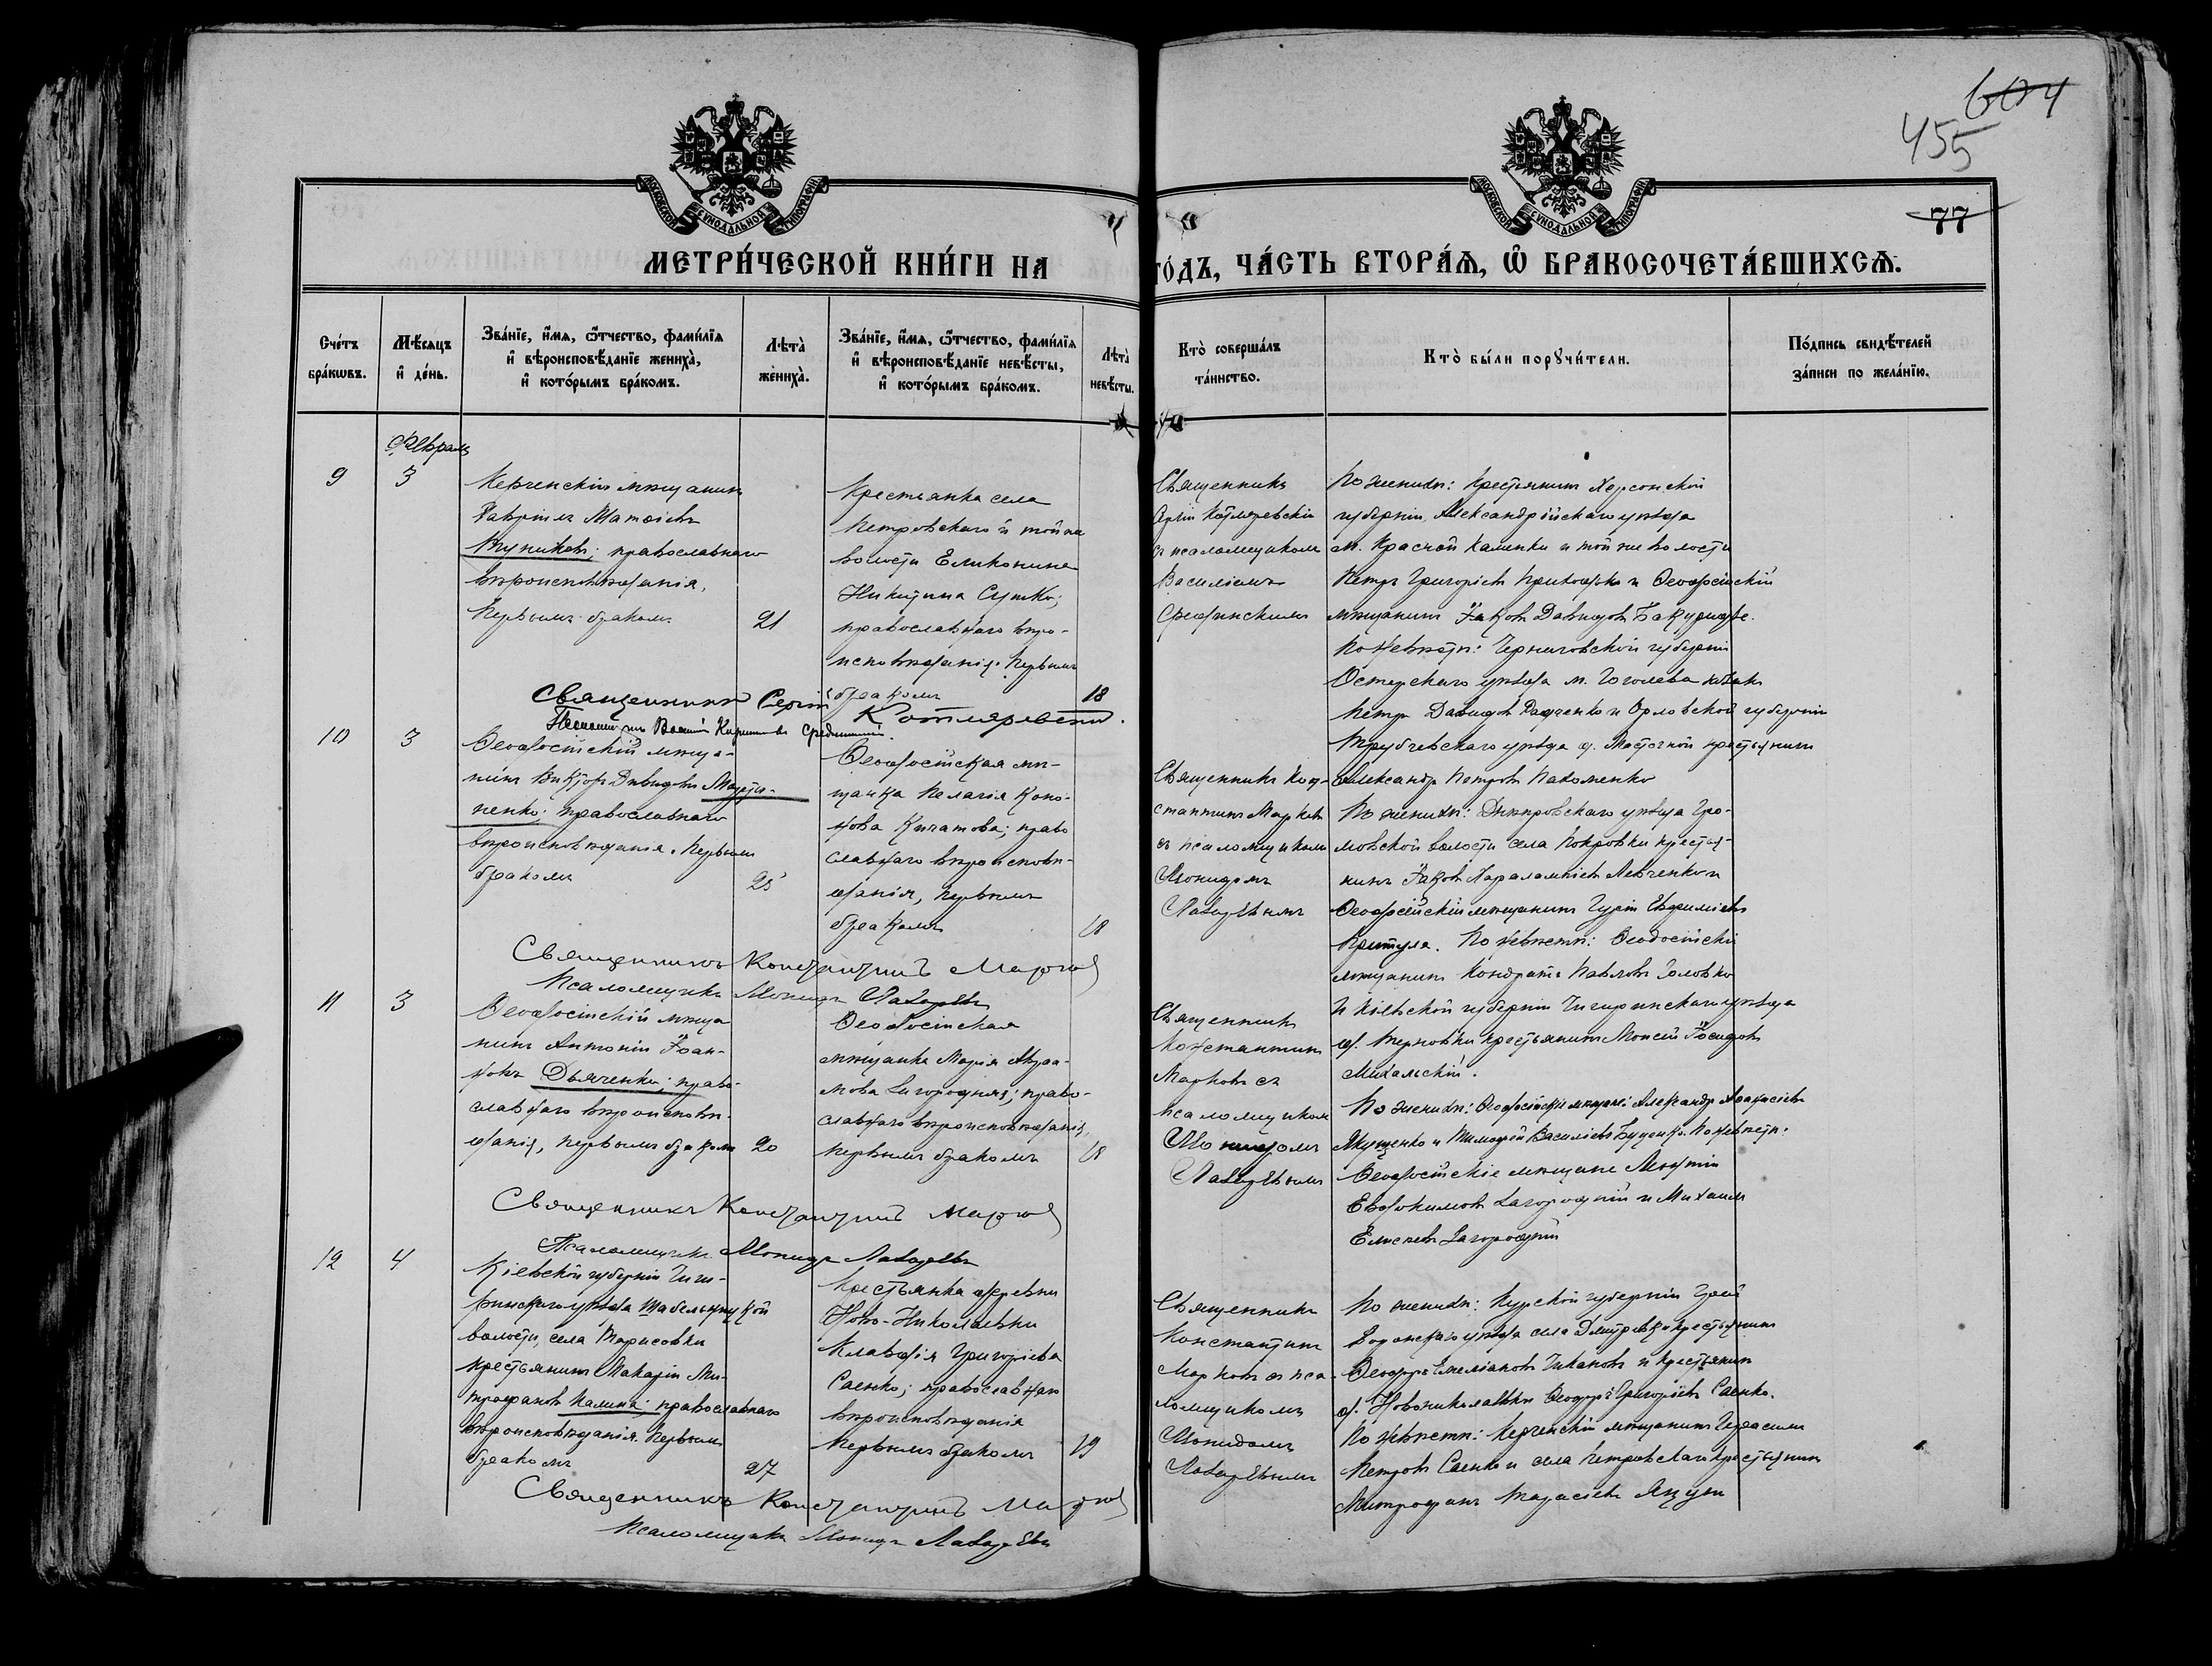 604
455
77
МОСКОВСКОЙ СѴНОДАЛЬНОЙ ТИПОГРАФІИ
МОСКОВСКОЙ СѴНОДАЛЬНОЙ ТИПОГРАФІИ
МЕТРИ́ЧЕСКОЙ КНИ́ГИ НА ГО́ДЪ, ЧА́СТЬ ВТОРА́Ѧ, Ѡ҆ БРАКОСОЧЕТА́ВШИХСѦ.
Сче́тъ бра́кѡвъ.
Мѣ́сяцъ и҆ де́нь.
Зва́нїе, и҆́мѧ, ѻ҆́тчество, фами́лїѧ и҆ вѣроисповѣ́данїе жениха̀, и҆ кото́рымъ бра́комъ.
Лѣта̀ жениха̀.
Зва́нїе, и҆́мѧ, ѻ҆́тчество, фами́лїѧ и҆ вѣроисповѣ́данїе невѣ́сты, и҆ кото́рымъ бра́комъ.
Лѣта̀ невѣ́сты.
Кто̀ соверша́лъ та́инство.
Кто̀ бы́ли порꙋчи́тели.
По́дпись свидѣ́телей за́писи по жела́нїю.
Февраль
9
3
Керченскій мѣщанинъ
Гавріилъ Матѳіевъ
православнаго
вѣроисповѣданія,
первымъ бракомъ
21
Крестьянка села
Петровскаго и той же
волости Еликонида
Никитина Сушко;
православнаго вѣро-
исповѣданія. Первымъ
бракомъ
18
Священникъ
Сергій Котляревскій
съ псаломщикомъ
Василіемъ
Срединскимъ
По женихѣ: Крестьянинъ Херсонской
губерніи, Александрійскаго уѣзда
м. Красной Каменки и той же волости
Петръ Григоріевъ и Ѳеодосійскій
мѣщанинъ Іаковъ Давидовъ
По невѣстѣ: Черниговской губерніи
Остерскаго уѣзда м. Гоголева козакъ
Петръ Давидовъ Радченко и Орловской губерніи
Трубчевскаго уѣзда д. крестьянинъ
Александръ Петровъ Пахоменко
Священникъ Сергій Котляревскій.
Василій Срединскій.
10
3
Ѳеодосійскій мѣща-
нинъ Викторъ Давидовъ Марти-
ненко; православнаго
вѣроисповѣданія. Первымъ
бракомъ
25
Ѳеодосійская мѣ-
щанка Пелагія Коно-
нова православ-
славнаго вѣроисповѣ-
данія, первымъ
бракомъ
18
Священникъ Кон-
стантинъ Марковъ
съ псаломщикомъ
Леонидомъ
Лазаревымъ
По женихѣ: Днѣпровскаго уѣзда Гро-
мовской волости села Покровки крестья-
нинъ Іаковъ Харалампіевъ Левченко и
Ѳеодосійскій мѣщанинъ Гурій Евфиміевъ
Притула. По невѣстѣ: Ѳеодосійскій
мѣщанинъ Кондратъ Павловъ Головко
и Кіевской губерніи Чигиринскаго уѣзда
д. Терновки крестьянинъ Моисей Іосифовъ
Михальскій.
Священникъ Константинъ Марковъ
Псаломщикъ Леонидъ Лазаревъ
11
3
Ѳеодосійскій мѣща-
нинъ Антоній Іоан-
новъ Дьяченко; право-
славнаго вѣроисповѣ-
данія, первымъ бракомъ
20
Ѳеодосійская
мѣщанка Марія Авраа-
мова Загородняя; право-
славнаго вѣроисповѣданія,
первымъ бракомъ
18
Священникъ
Константинъ
Марковъ съ
псаломщикомъ
Леонидомъ
Лазаревымъ
По женихѣ: Ѳеодосійскіе мѣщане: Александръ Аѳанасіевъ
Якущенко и Тимоѳей Василіевъ Буценко. По невѣстѣ:
Ѳеодосійскіе мѣщане Леонтій
Евдокимовъ Загородній и Михаилъ
Елисеевъ Загородній
Священникъ Константинъ Марковъ
Псаломщикъ Леонидъ Лазаревъ
12
4
Кіевской губерніи Чиги-
ринскаго уѣзда Шабельницкой
волости, села Тарасовки
крестьянинъ Макарій Ми-
трофановъ Калина; православнаго
вѣроисповѣданія. Первымъ
бракомъ
27
Крестьянка деревни
Ново-Николаевки
Клавдія Григоріева
Саенко; православнаго
вѣроисповѣданія
первымъ бракомъ
19
Священникъ
Константинъ
Марковъ съ пса-
ломщикомъ
Леонидомъ
Лазаревымъ
По женихѣ: Курской губерніи Грай-
воронскаго уѣзда села Дмитровки крестьянинъ
Ѳеодоръ Емеліановъ Чикановъ и крестьянинъ
д. Новониколаевки Ѳеодоръ Григоріевъ Саенко.
По невѣстѣ: Керченскій мѣщанинъ Герасимъ
Петровъ Саенко и села Петровскаго крестьянинъ
Митрофанъ Тарасіевъ Яцута
Священникъ Константинъ Марковъ
Псаломщикъ Леонидъ Лазаревъ